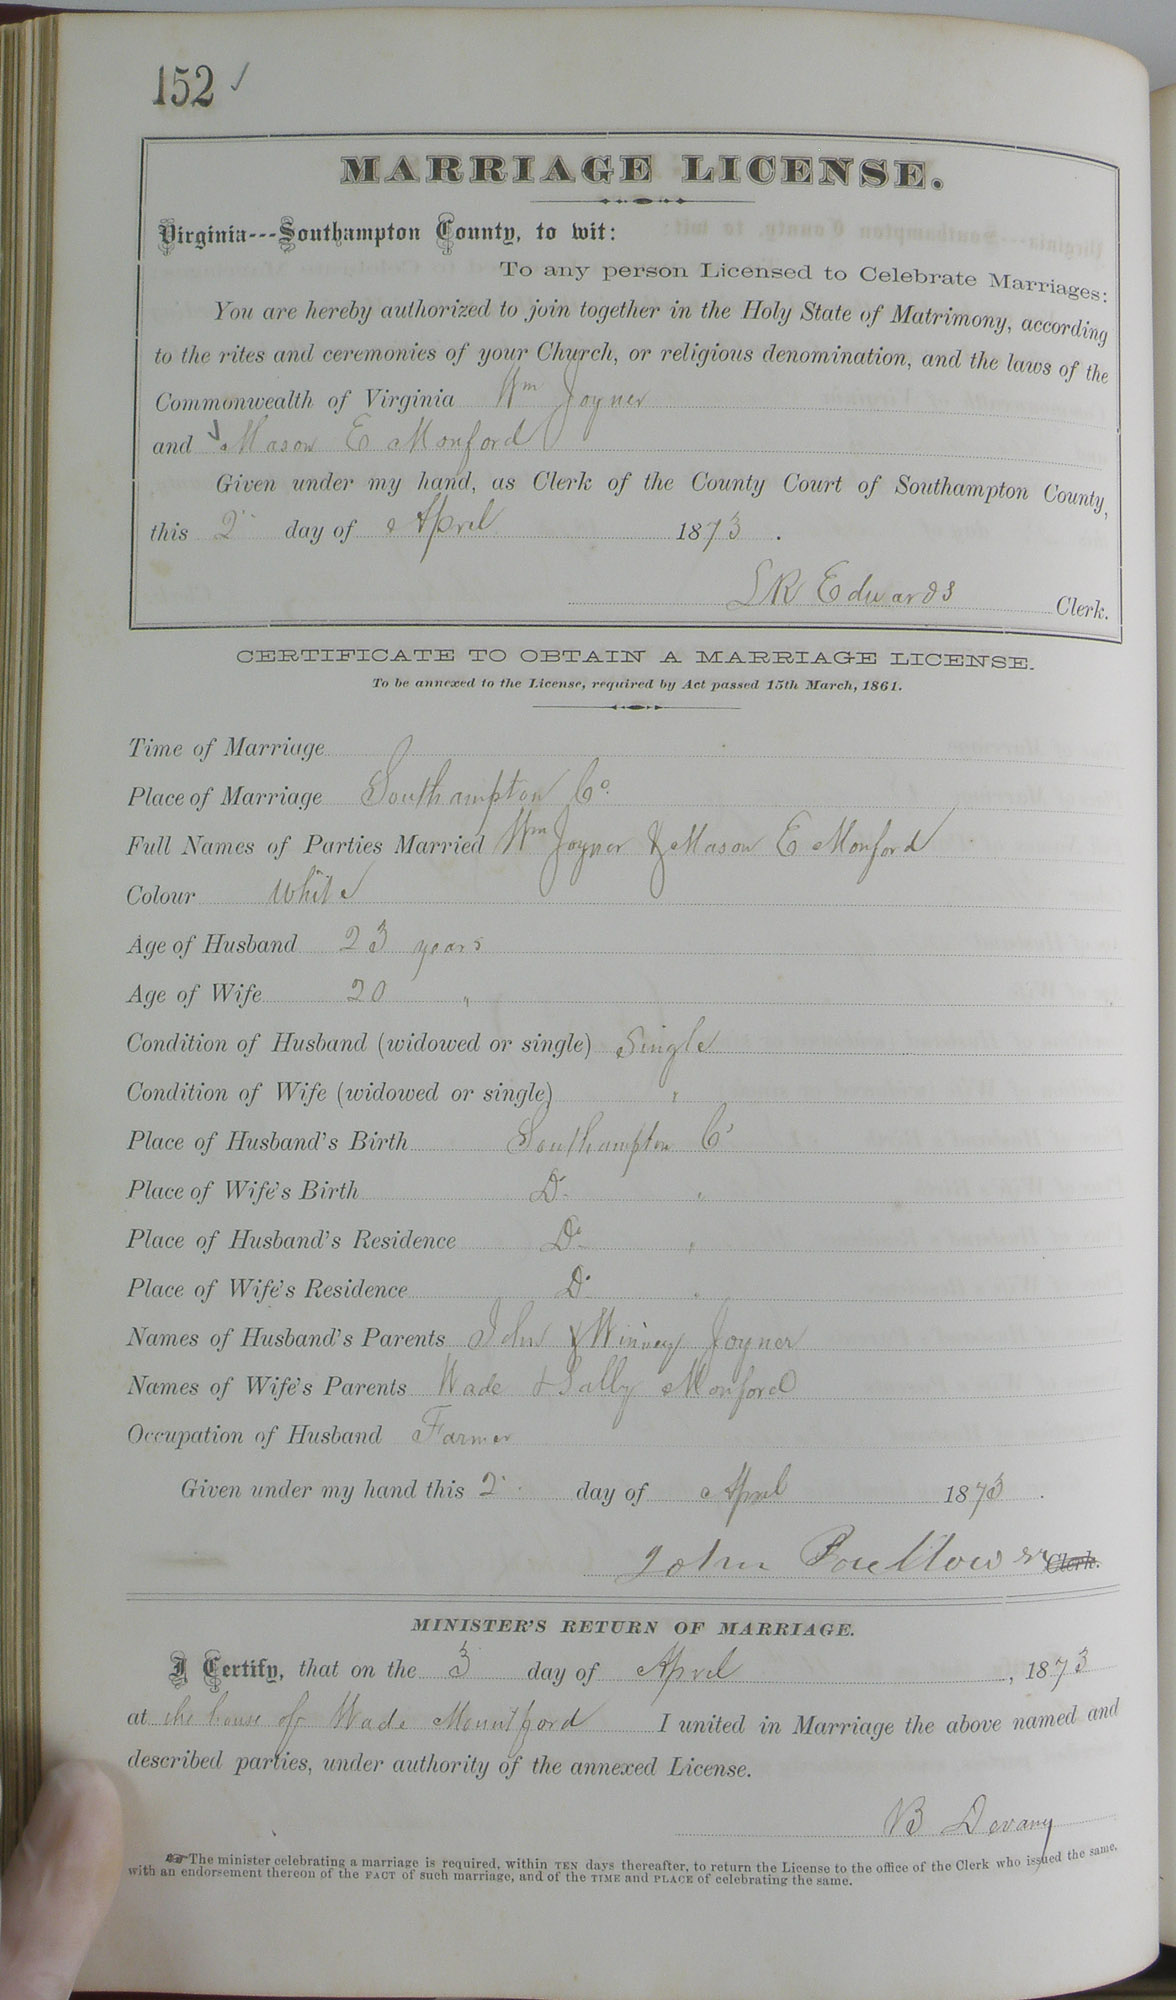 152 ✓
MARRIAGE LICENSE.
Virginia---Southampton County, to wit:
To any person Licensed to Celebrate Marriages:
You are hereby authorized to join together in the Holy State of Matrimony, according
to the rites and ceremonies of your Church, or religious denomination, and the laws of the
Commonwealth of Virginia Wm Joyner
and ✓ Mason E Monford
Given under my hand, as Clerk of the County Court of Southampton County,
this 2 day of April 1873.
LR Edwards Clerk.
CERTIFICATE TO OBTAIN A MARRIAGE LICENSE.
To be annexed to the License, required by Act passed 15th March, 1861.
Time of Marriage
Place of Marriage Southampton Co.
Full Names of Parties Married Wm Joyner & Mason E Monford
Colour White
Age of Husband 23 years
Age of Wife 20 "
Condition of Husband (widowed or single) Single
Condition of Wife (widowed or single) "
Place of Husband's Birth Southampton Co
Place of Wife's Birth Do "
Place of Husband's Residence Do "
Place of Wife's Residence Do "
Names of Husband's Parents John & Winney Joyner
Names of Wife's Parents Wade & Sally Monford
Occupation of Husband Farmer
Given under my hand this 2 day of April 1873.
John Clerk.
MINISTER'S RETURN OF MARRIAGE.
I Certify, that on the 3 day of April, 1873
at the house of Wade Mountford I united in Marriage the above named and
described parties, under authority of the annexed License.
B Devany
☞ The minister celebrating a marriage is required, within TEN days thereafter, to return the License to the office of the Clerk who issued the same,
with an endorsement thereon of the FACT of such marriage, and of the TIME and PLACE of celebrating the same.